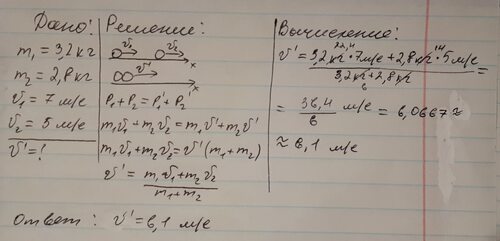 Дано:
m₁ = 3,2 кг
m₂ = 2,8 кг
υ₁ = 7 м/с
υ₂ = 5 м/с
υ' = ?
Решение:
υ₁ υ₂
x
υ'
x
P₁ + P₂ = P₁' + P₂'
m₁υ₁ + m₂υ₂ = m₁υ' + m₂υ'
m₁υ₁ + m₂υ₂ = υ'(m₁ + m₂)
υ' = (m₁υ₁ + m₂υ₂) / (m₁ + m₂)
Вычисление:
22,4 14
υ' = (3,2 кг · 7 м/с + 2,8 кг · 5 м/с) / (3,2 кг + 2,8 кг) =
6
= 36,4 / 6 м/с = 6,0667 ≈
≈ 6,1 м/с
Ответ: υ' = 6,1 м/с